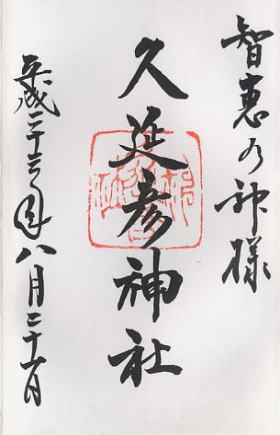 智恵の神様
久延彦神社
平成二十三年八月二十一日